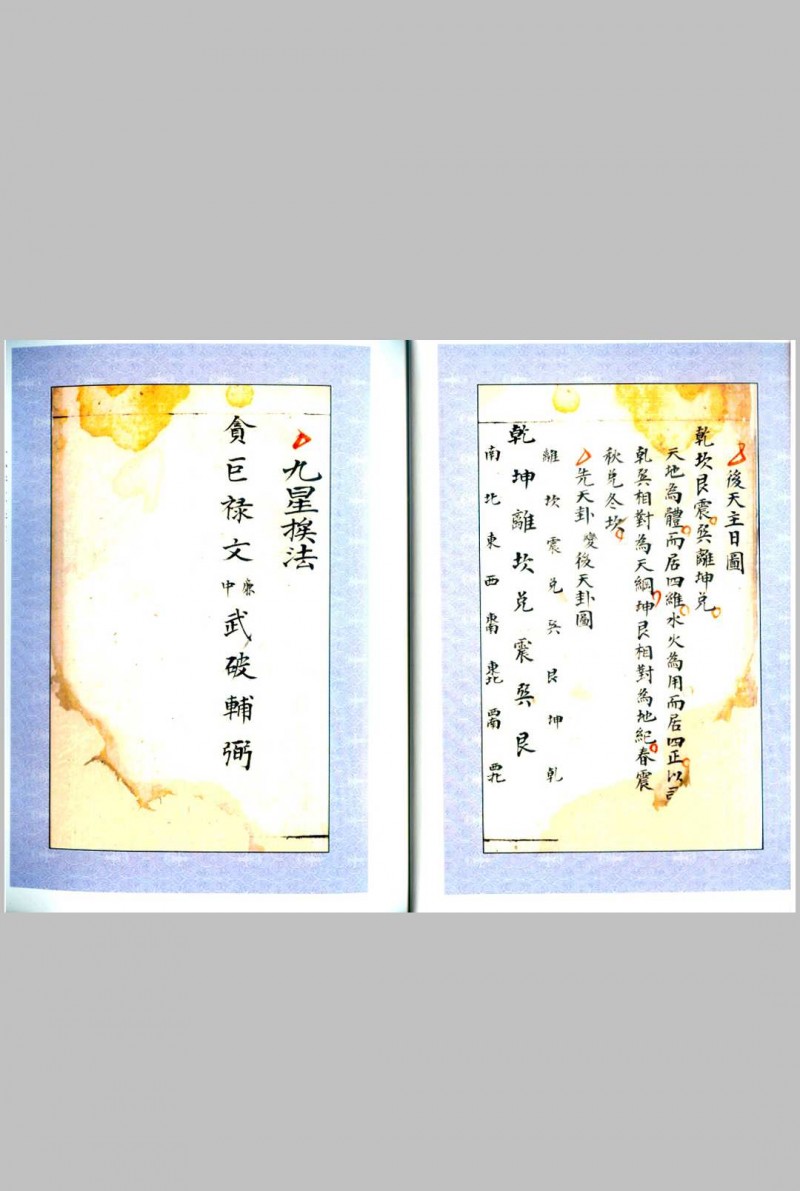 後天主日圖
乾坎艮震巽離坤兌
天地為體而居四維水火為用而居四正以司
乾巽相對為天綱坤艮相對為地紀春震
秋兌冬坎
先天卦變後天卦圖
離坎震兌巽艮坤乾
乾坤離坎兌震巽艮
南北東西東南東北西南西北
九星挨法
貪巨祿文廉中武破輔弼